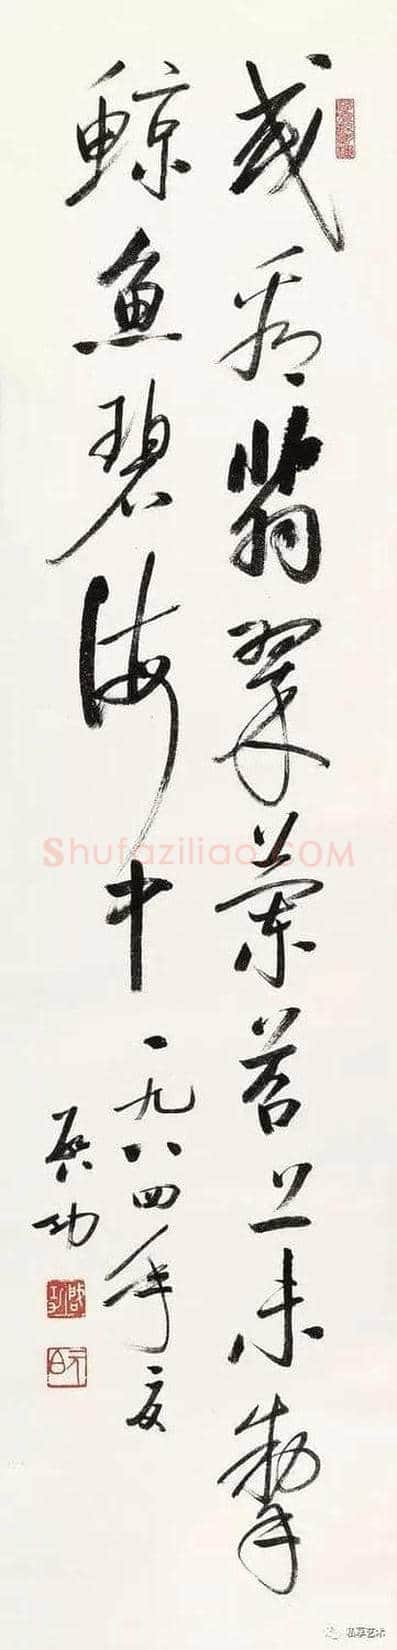 或看翡翠蘭苕上未掣
鯨魚碧海中
一九八四年夏
啟功
啟功
元白
Shufaziliao.COM